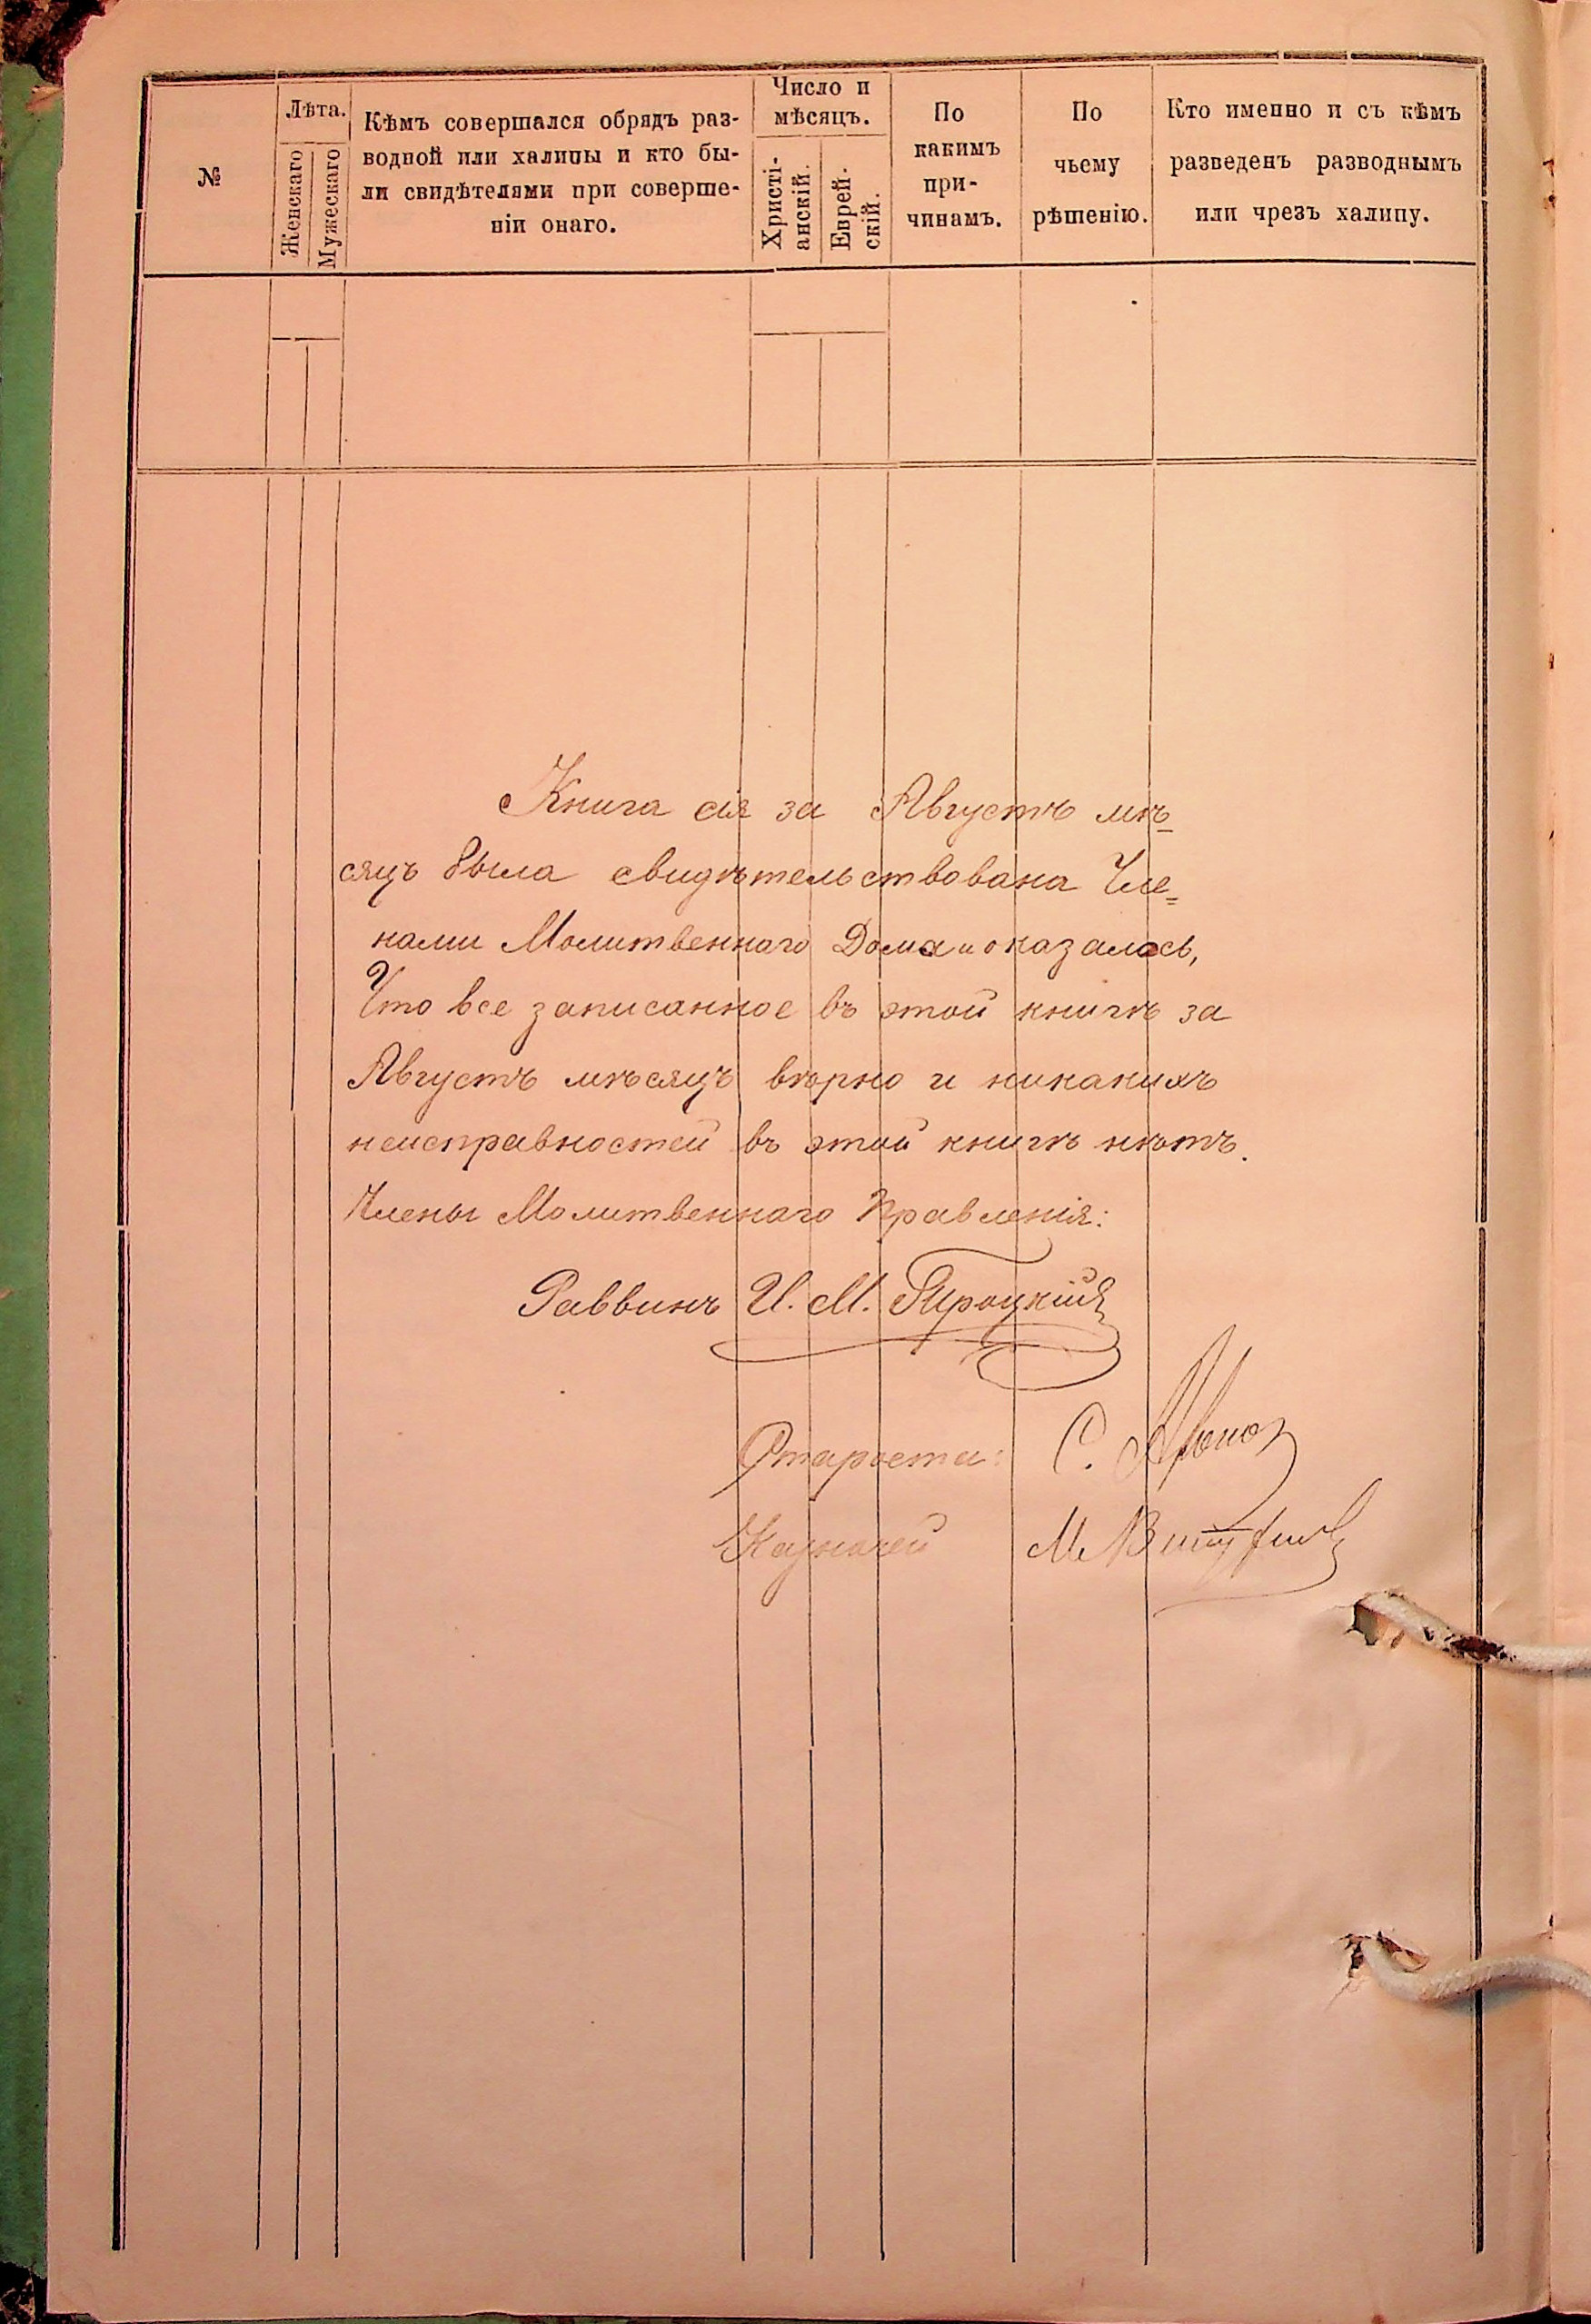 №
Лѣта.
Женскаго
Мужескаго
Кѣмъ совершался обрядъ раз-
водной или халицы и кто бы-
ли свидѣтелями при соверше-
ніи онаго.
Число и
мѣсяцъ.
Христі-
анскій.
Еврей-
скій.
По
какимъ
при-
чинамъ.
По
чьему
рѣшенію.
Кто именно и съ кѣмъ
разведенъ разводнымъ
или чрезъ халицу.
Книга сія за Августъ мѣ-
сяцъ была свидѣтельствована Чле=
нами Молитвеннаго Дома и оказалось,
Что все записанное въ этой книгѣ за
Августъ мѣсяцъ вѣрно и никакихъ
неисправностей въ этой книгѣ нѣтъ.
Члены Молитвеннаго Правленія:
Раввинъ И. М.
Староста: С.
Казначей М